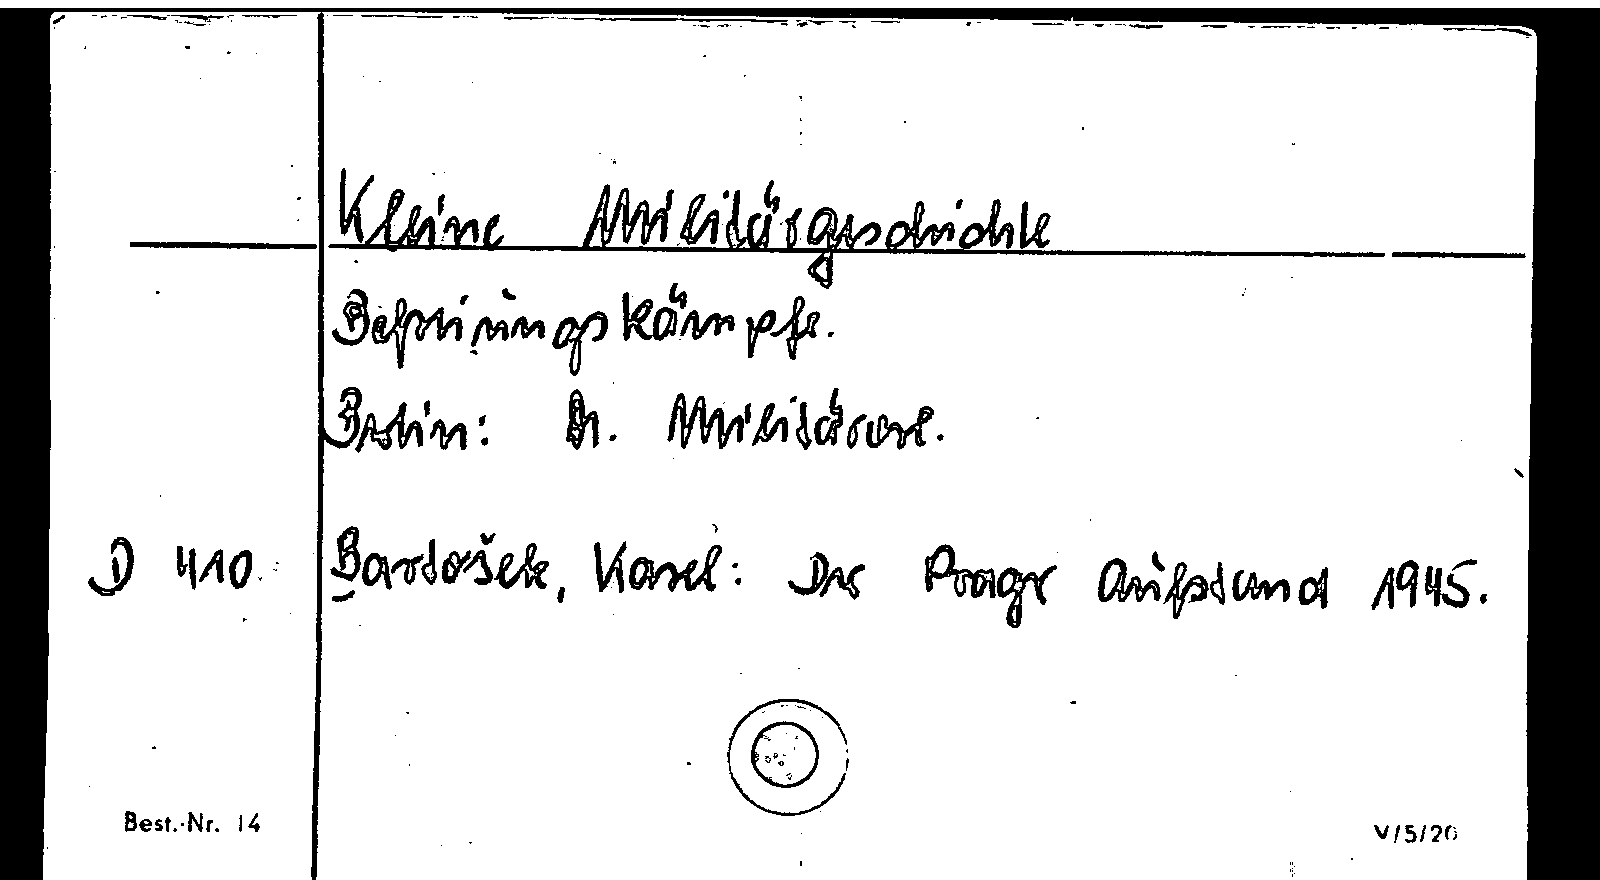 Kleine Militärgeschichte
Befreiungskämpfe.
Berlin: Militärverl.
D 410 Bartošek, Karel: Der Prager Aufstand 1945.
Best.-Nr. 14 V/5/20